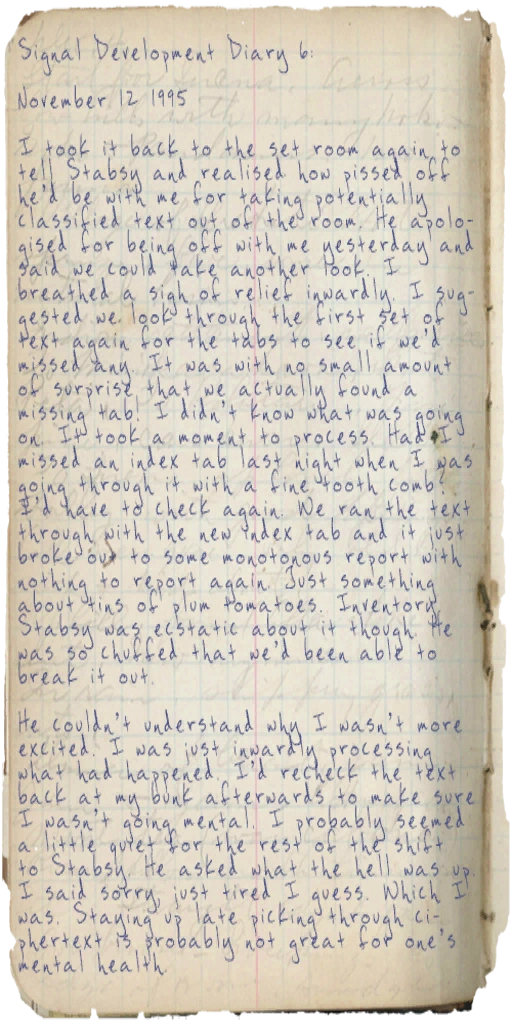 Signal Development Diary 6:
November 12 1995
I took it back to the set room again to
tell Stabsy and realised how pissed off
he'd be with me for taking potentially
classified text out of the room. He apolo-
gised for being off with me yesterday and
said we could take another look. I
breathed a sigh of relief inwardly. I sug-
gested we look through the first set of
text again for the tabs to see if we'd
missed any. It was with no small amount
of surprise that we actually found a
missing tab! I didn't know what was going
on. It took a moment to process. Had I
missed an index tab last night when I was
going through it with a fine tooth comb?
I'd have to check again. We ran the text
through with the new index tab and it just
broke out to some monotonous report with
nothing to report again. Just something
about tins of plum tomatoes. Inventory.
Stabsy was ecstatic about it though. He
was so chuffed that we'd been able to
break it out.
He couldn't understand why I wasn't more
excited. I was just inwardly processing
what had happened. I'd recheck the text
back at my bunk afterwards to make sure
I wasn't going mental. I probably seemed
a little quiet for the rest of the shift
to Stabsy. He asked what the hell was up.
I said sorry, just tired I guess. Which I
was. Staying up late picking through ci-
phertext is probably not great for one's
mental health.